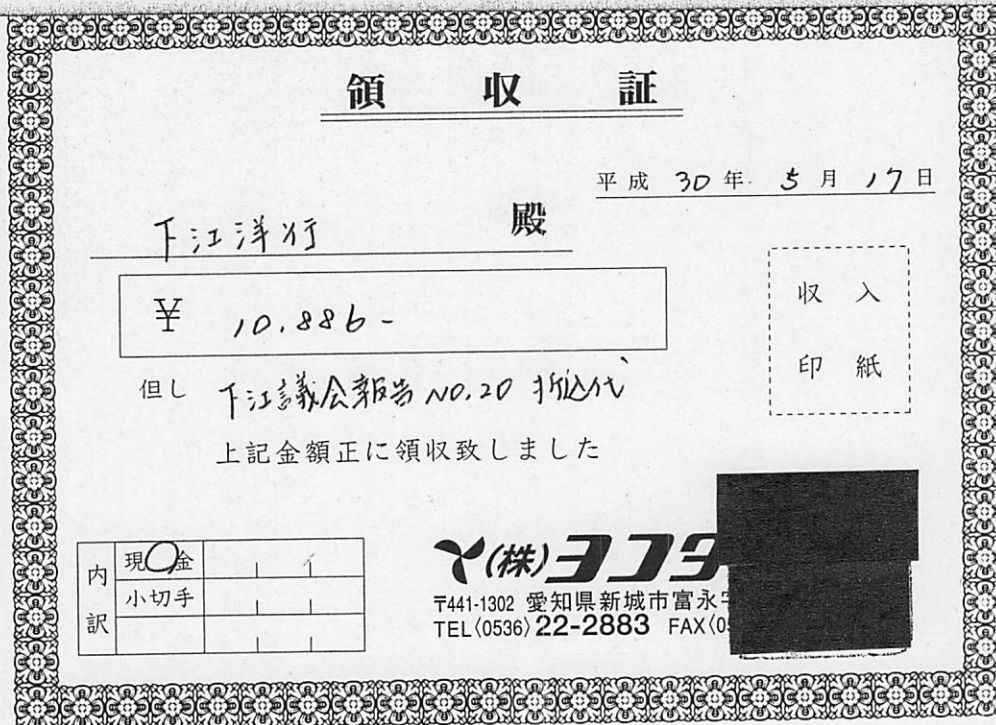 領収証
平成 30年 5月 17日
下江洋行 殿
¥ 10.886-
収入
印紙
但し 下江議会報告 NO.20 折込代
上記金額正に領収致しました
内訳
現金
小切手
(株)ヨコタ
〒441-1302 愛知県新城市富永字
TEL〈0536〉22-2883 FAX〈05